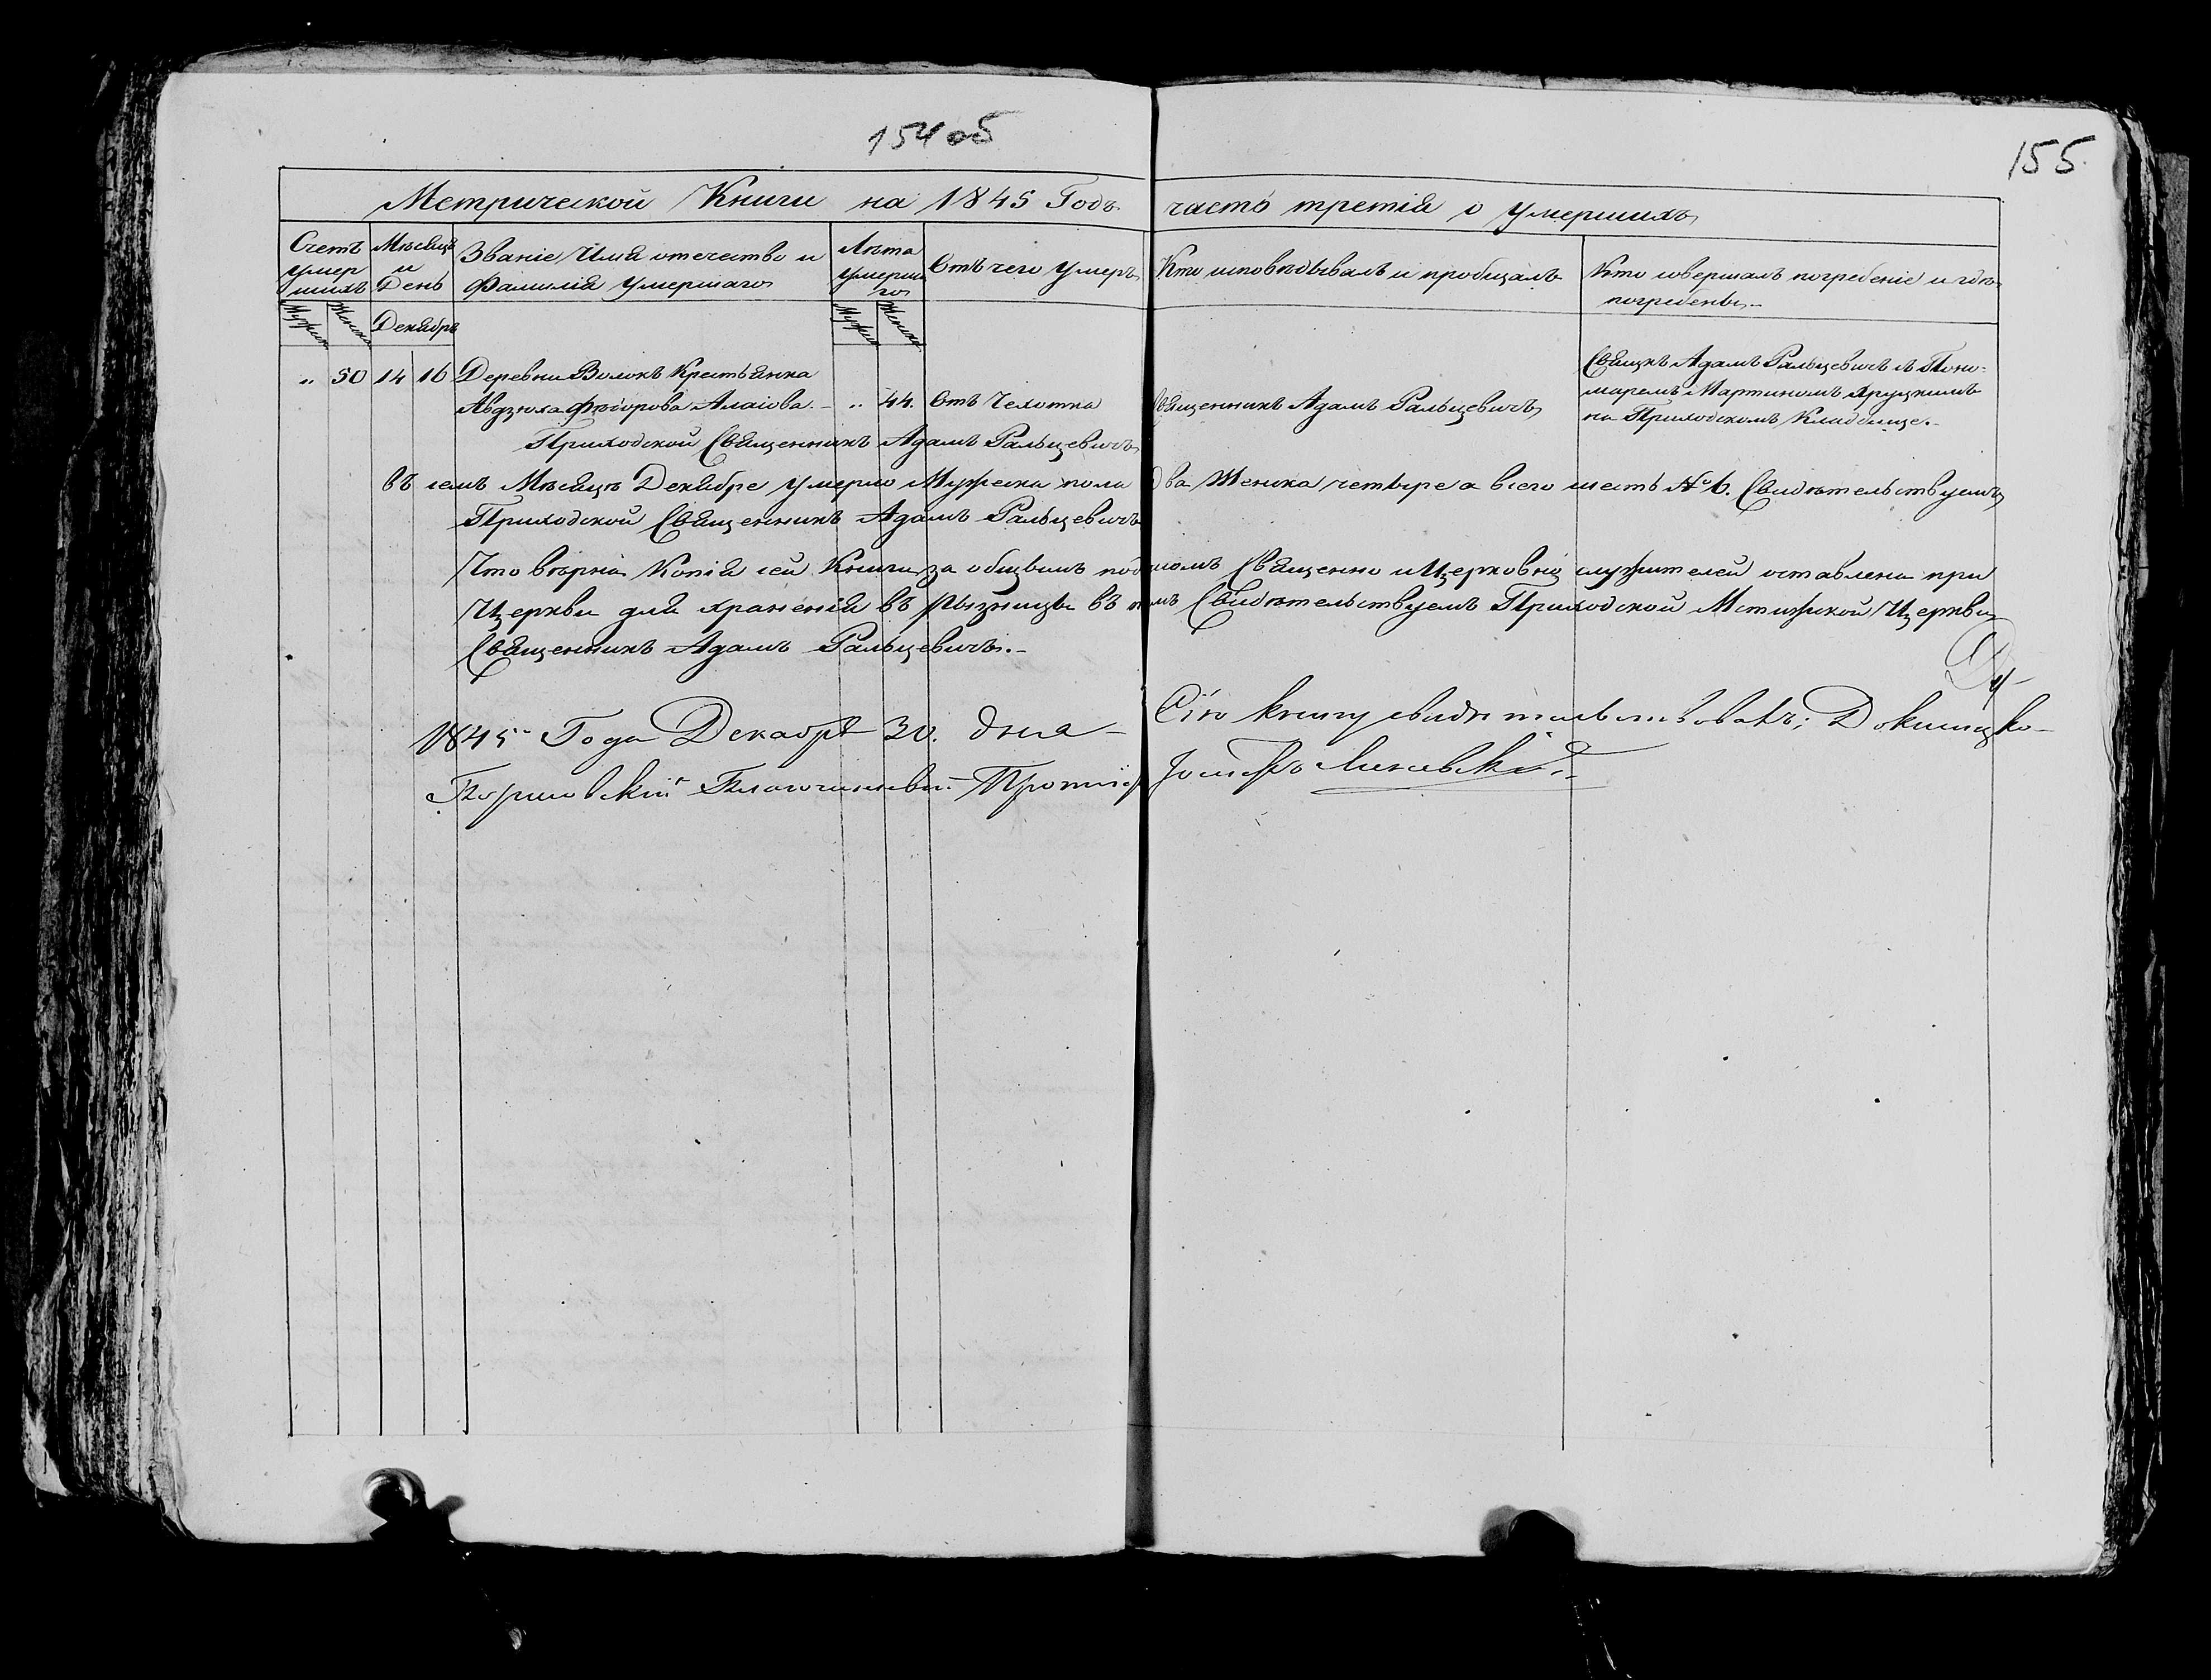 154 об
155
Метрической Книги на 1845 Годъ часть третія о умершихъ
Счетъ умер шихъ
Мѣсяцъ и День
Званіе Имя отечество и фамилія умершаго
Лѣта умерша го
Отъ чего умеръ
Кто исповѣдывалъ и пріобщалъ
Кто совершалъ погребеніе и гдѣ погребены
Мужск Женск
Декабрь
Мужск Женск
„ 50 14 16 Деревни Волокъ Крестьянка
Авдзюха Ѳеодорова
„ 44. Отъ Чехотки
Священникъ Адамъ Ральцевичъ
Свящкъ Адамъ Ральцевичъ съ Поно-
маремъ Мартиномъ Хруцкимъ
на Приходскомъ Кладбище.
Приходской Священникъ Адамъ Ральцевичъ
Въ семъ Мѣсяцѣ Декабре умерло Мужеска пола два Женска четыре а всего шесть № 6. Свидѣтельствуемъ
Приходской Священникъ Адамъ Ральцевичъ
Что вѣрна Копія сей Книги за общимъ подписомъ Священно и Церковно служителей оставлена при
Церкви для храненія въ Рызницы въ томъ Свидѣтельствуемъ Приходской Мстижской Церкви
Священникъ Адамъ Ральцевичъ.
1845 Года Декабря 30. дня Сію книгу свидѣтельствовалъ; Докшицко-
Борисовскій Благочинный Протоіер Іосифъ